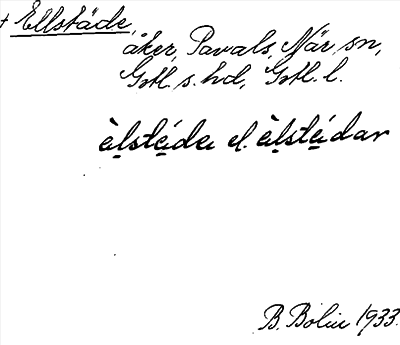 + Ellstäde,
åker, Pavals, När sn,
Gotl. s. hd, Gotl. l.
èlstéde el. èlstédar
B. Bolin 1933.